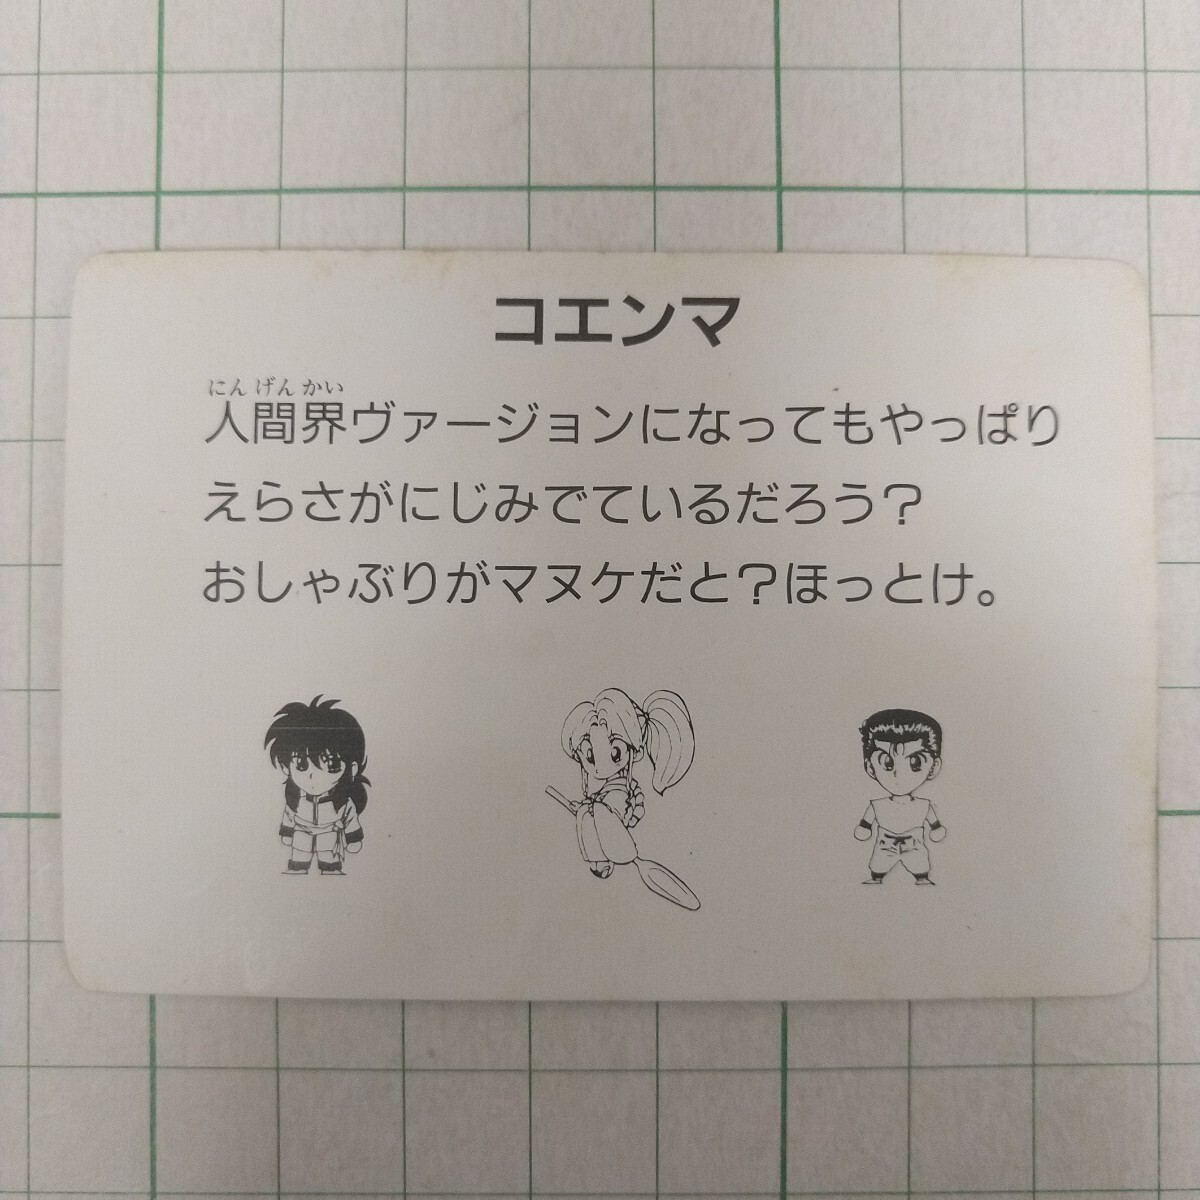 コエンマ
にんげんかい
人間界ヴァージョンになってもやっぱり
えらさがにじみでているだろう？
おしゃぶりがマヌケだと？ほっとけ。